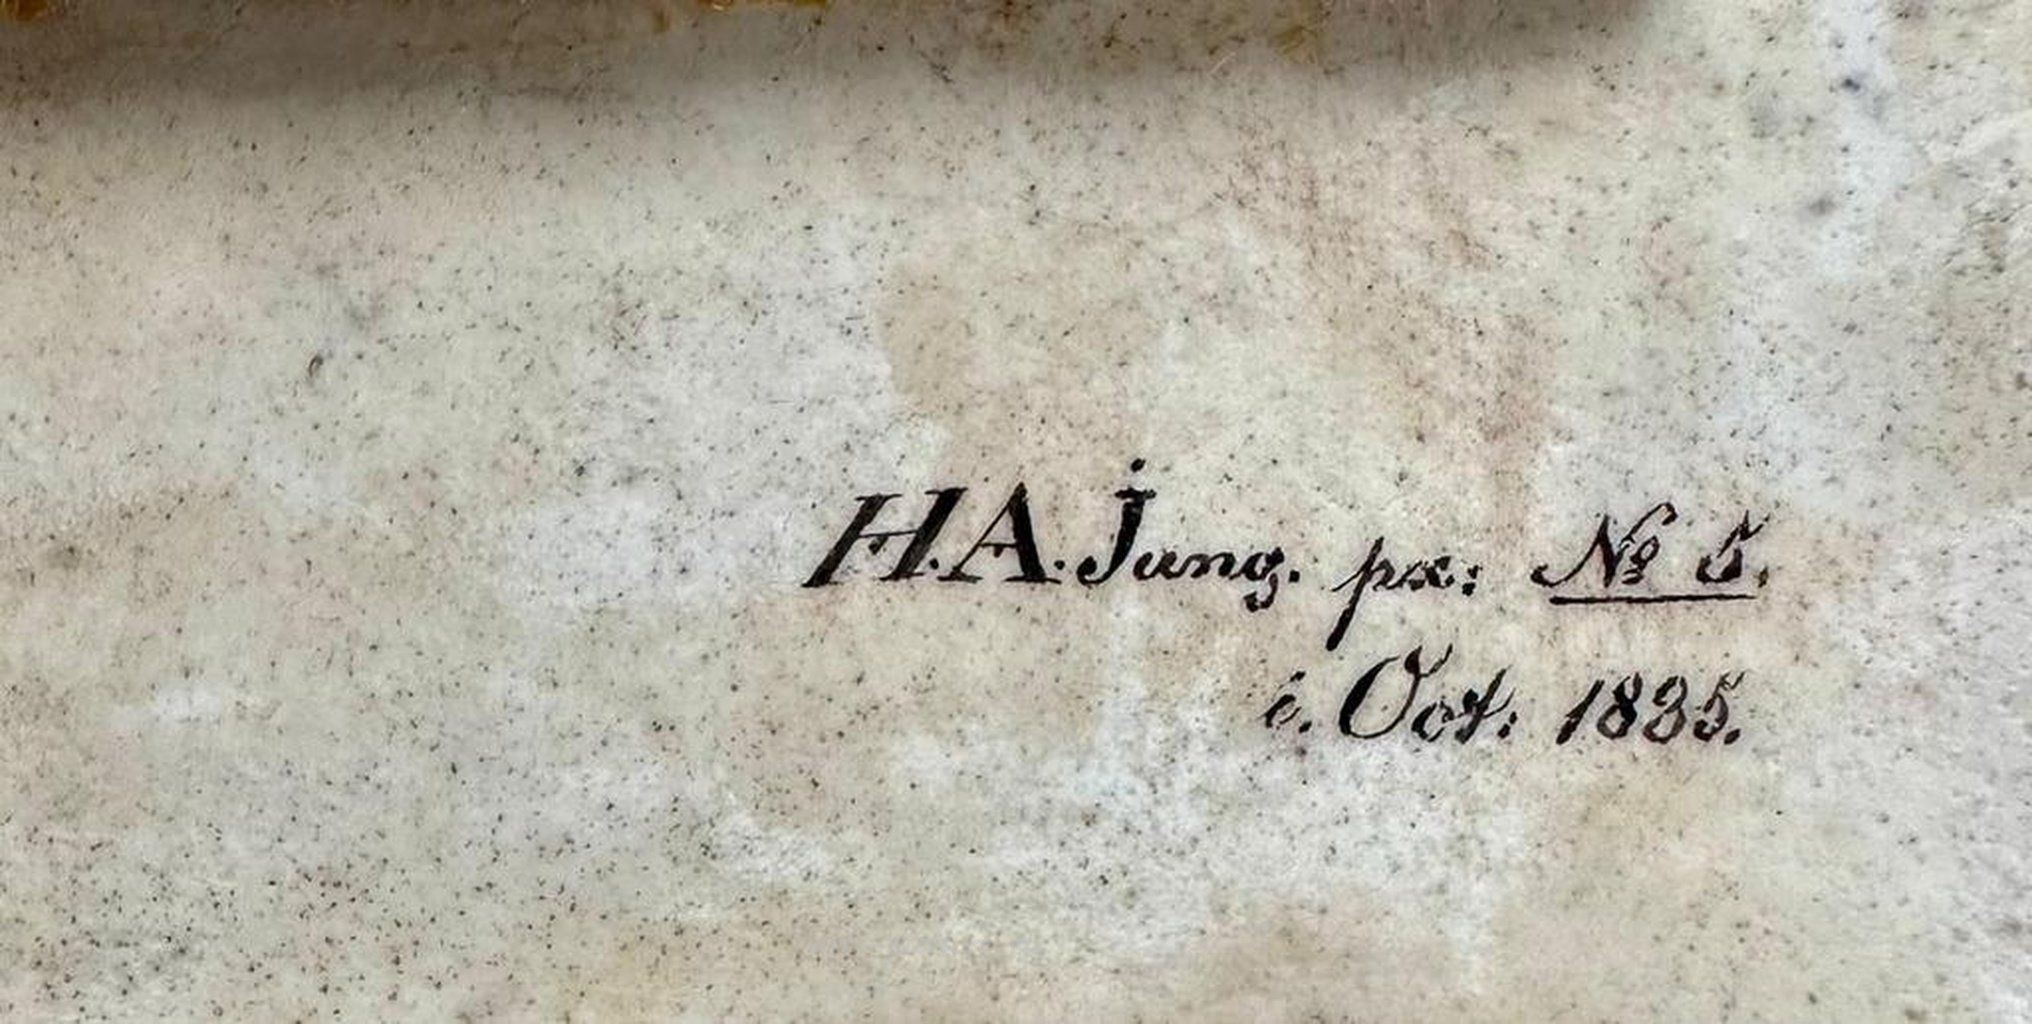 H.A. Jung. px: No 5.
i. Oct: 1835.